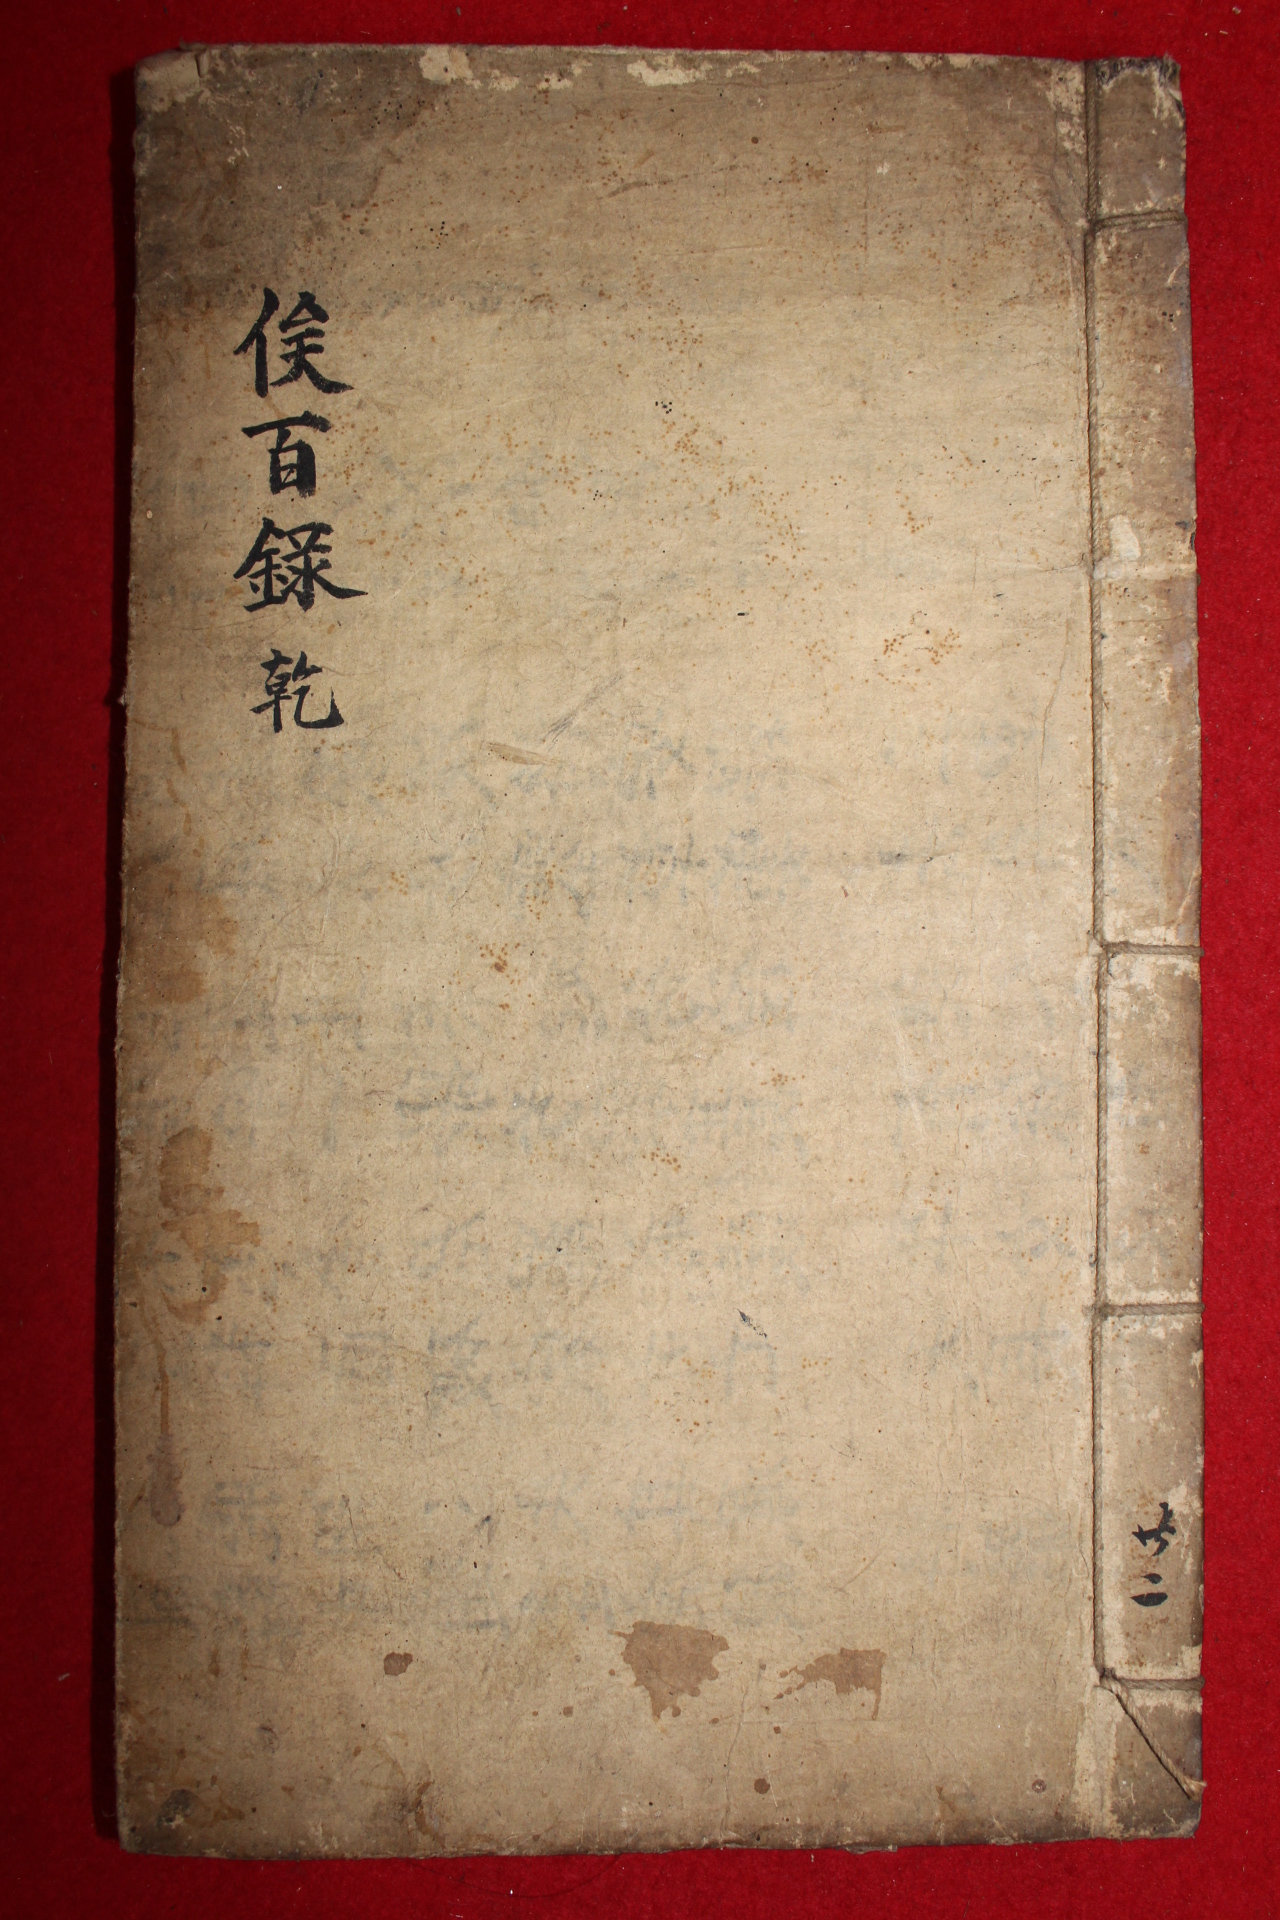 俟百錄 乾
廿二